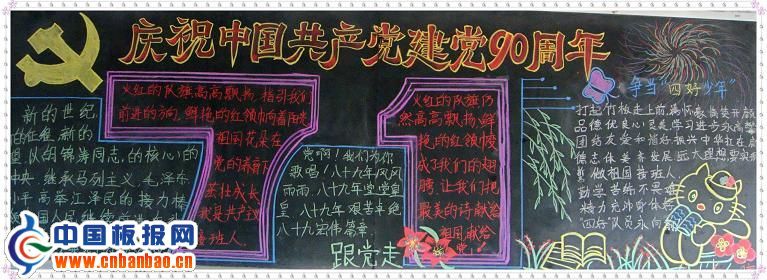 庆祝中国共产党建党90周年
新的世纪
的征程,新的
望,以胡锦涛同志的核心的
中央,继承马列主义,毛泽东
小平高举江泽民的接力棒
国人民继续前进
71
火红的队旗高高飘扬,指引我们
前进的方向,鲜艳的红领巾向着阳光
祖国花朵在
党的
茁壮成长
我是共产
接班人
党啊!我们为你
歌唱!八十九年风风
雨雨,八十九年堂堂皇
皇,八十九年艰苦卓绝
八十九宏伟篇章
跟党走
火红的队旗仍
然高高飘扬,鲜
艳的红领巾
成了我们的翅
膀,让我们把
最美的诗献给
祖国献给
党!
争当“四好少年”
打起竹板走上前,
品德优良心灵美,学习进步
团结友爱和谐好,振兴中华
做祖国接班人
勤学苦练不畏难
精力充沛身体
“四好”队员永向前
中国板报网
www.cnbanbao.cn